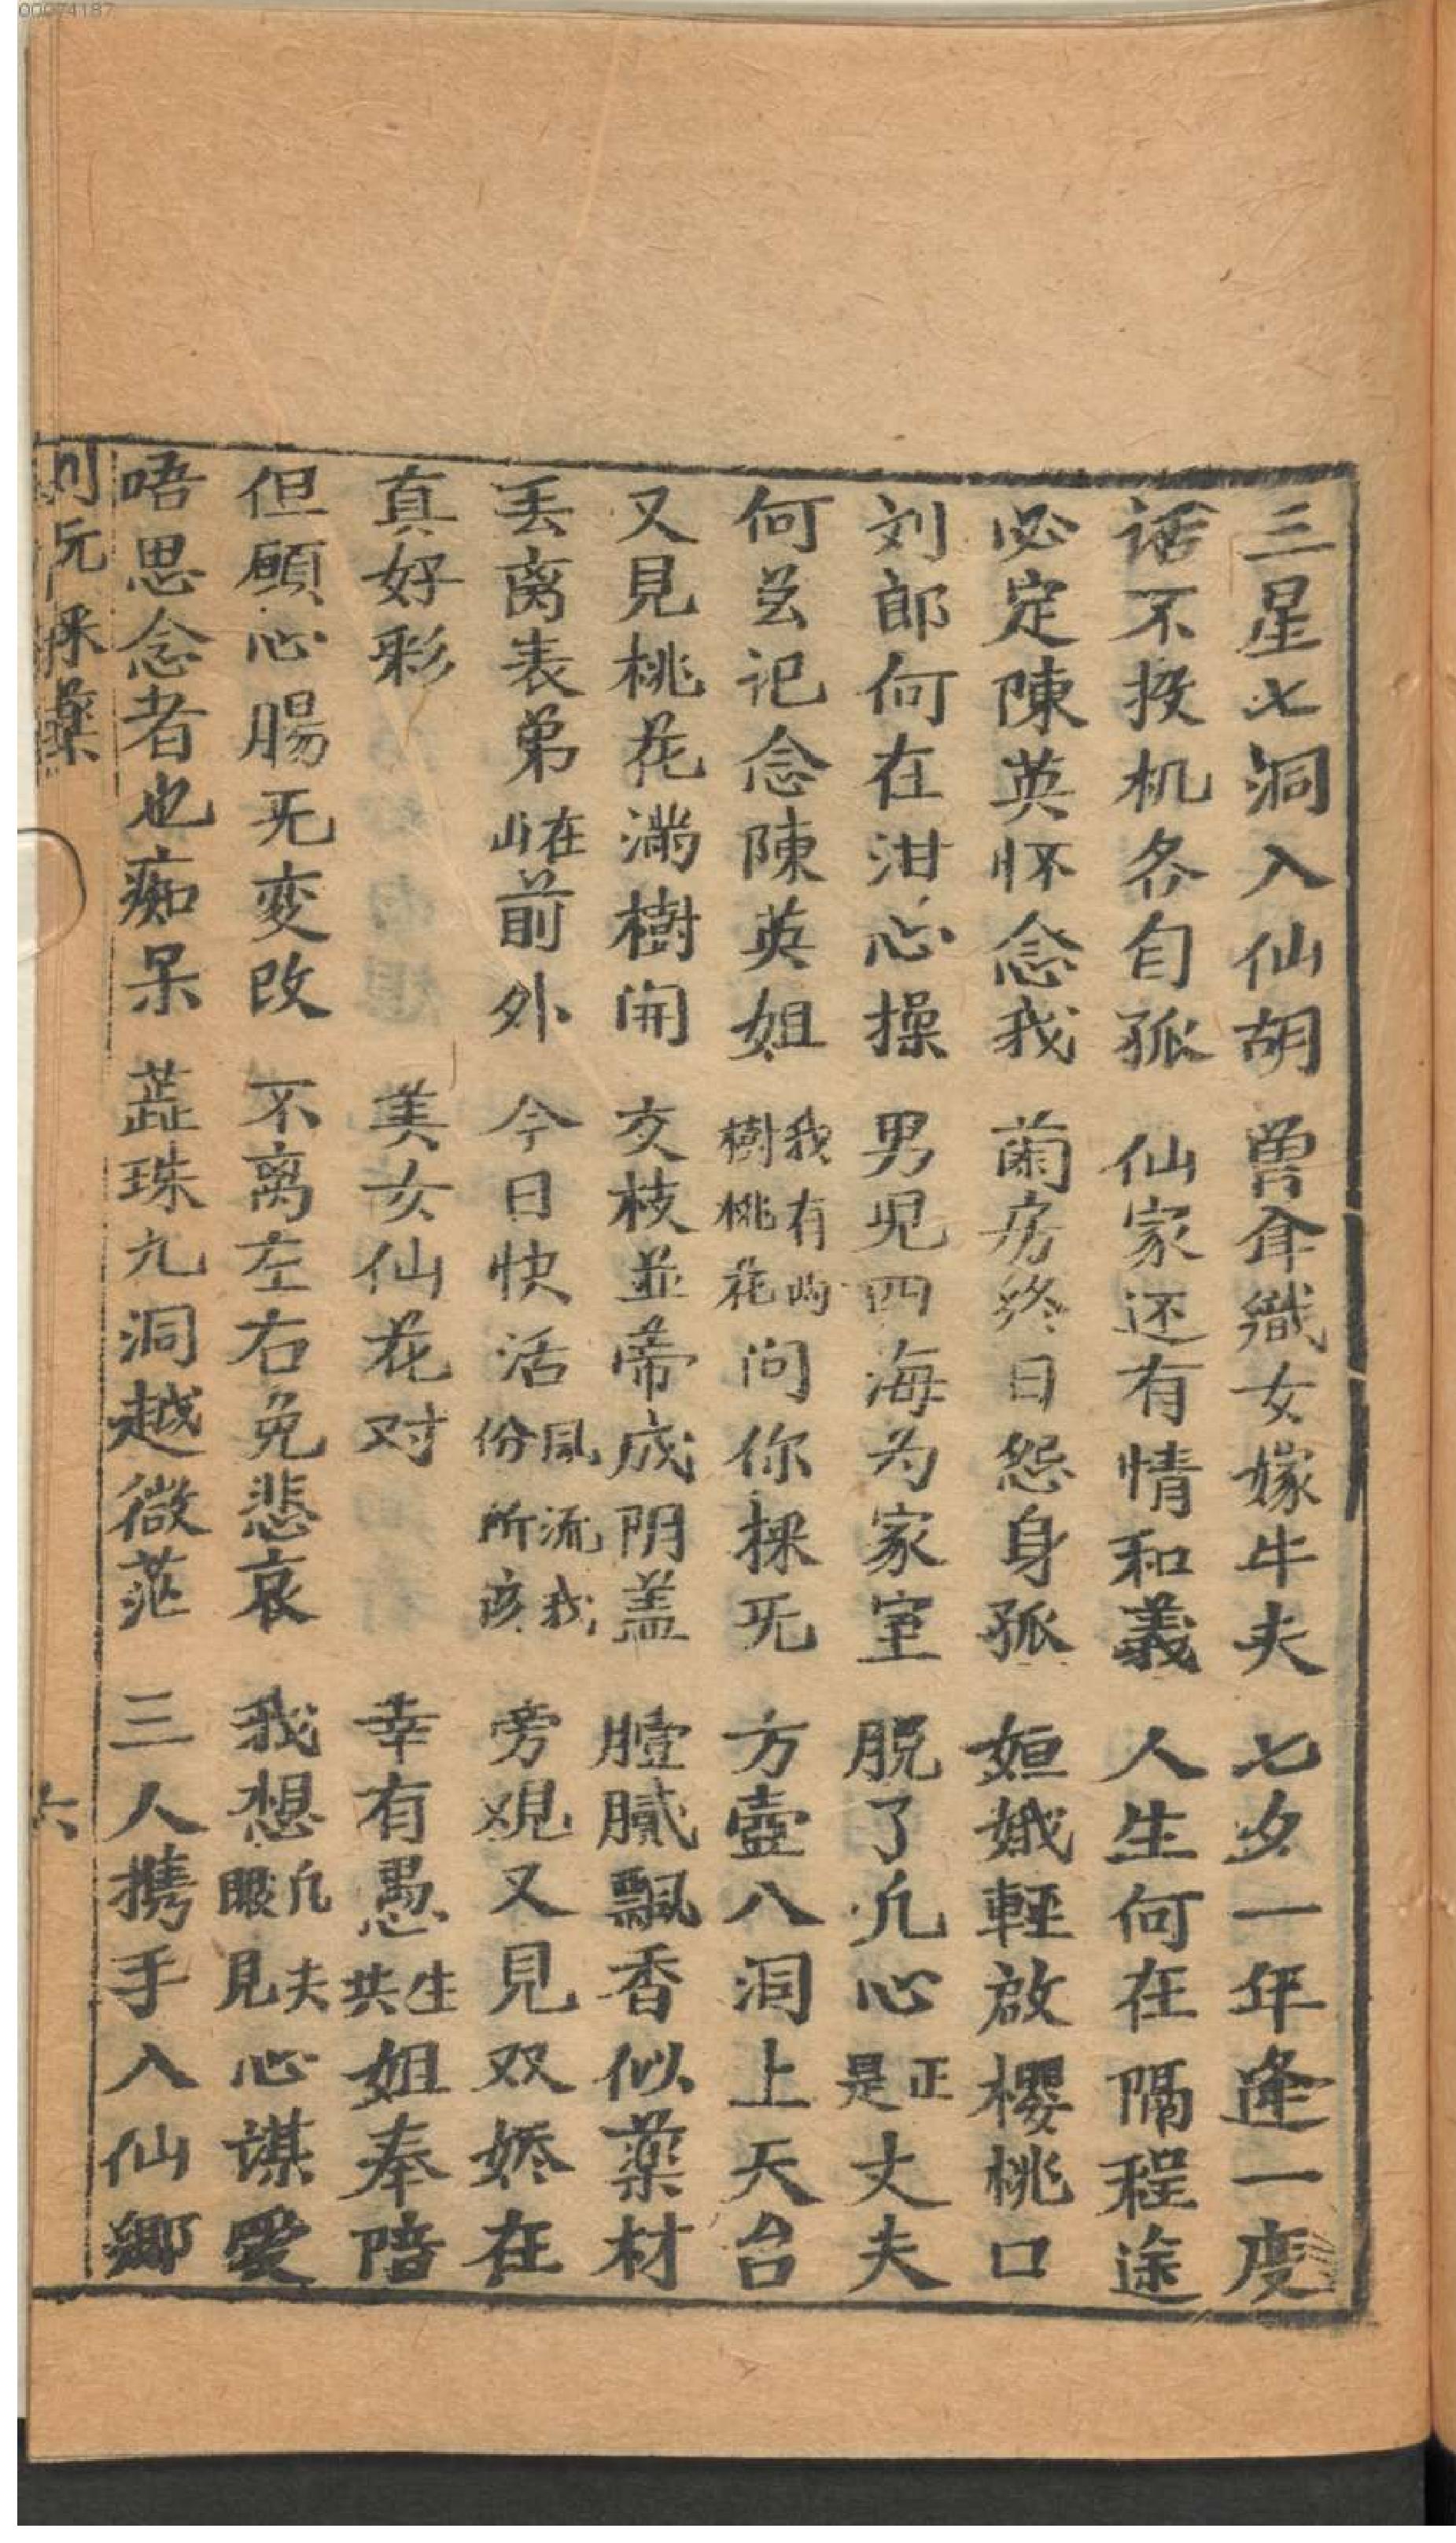 三星七洞入仙胡　曽耸織女嫁牛夫　七夕一年逢一度
话不投机各自孤　仙家还有情和義　人生何在隔程途
必定陳英怀念我　蘭房终日怨身孤　姮娥輕啟櫻桃口
刘郎何在泔心操　男児四海为家室　脱了凢心正是丈夫
何苃记念陳英姐　我有两樹桃花问你採旡　方壺八洞上天台
又見桃花满樹開　交枝並蒂成阴盖　膻膩飄香似藥材
丢离表弟在山前外　今日快活風流我份所该　旁观又見双娇在
真好彩　美女仙花对　幸有愚生共姐奉陪
但願心腸旡変改　不离左右免悲哀　我想凢夫眼見心謀爱
唔思念者也痴呆　蕋珠九洞越微茫　三人携手入仙鄉
刘阮採藥
六
00074187